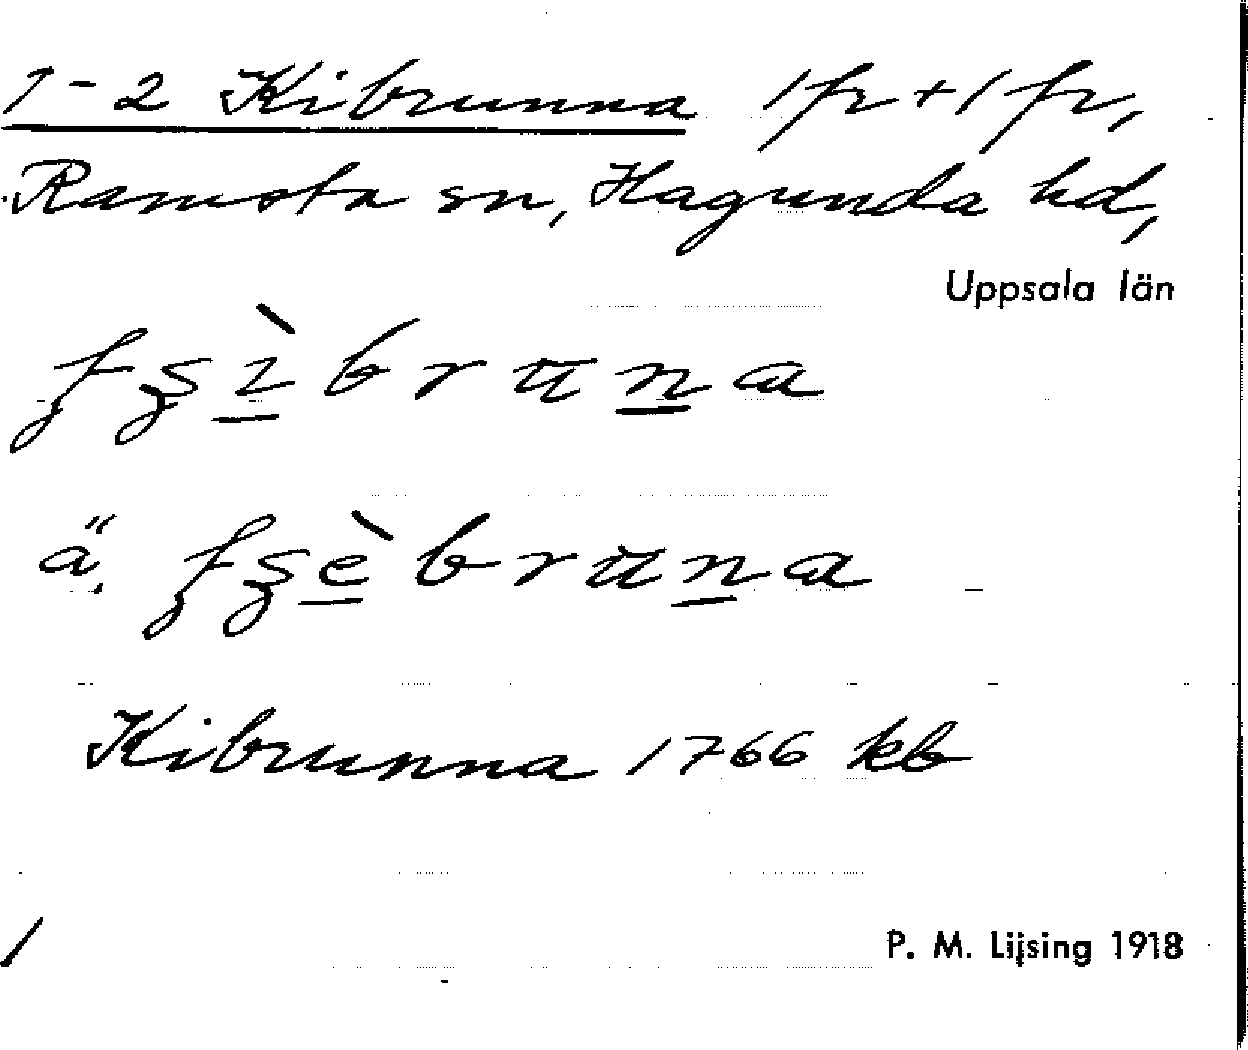 1-2 Kibrunna 1 fr + 1 fr,
Ramsta sn, Hagunda hd,
Uppsala län
ä.
Kibrunna 1766 kb
/
P. M. Lijsing 1918